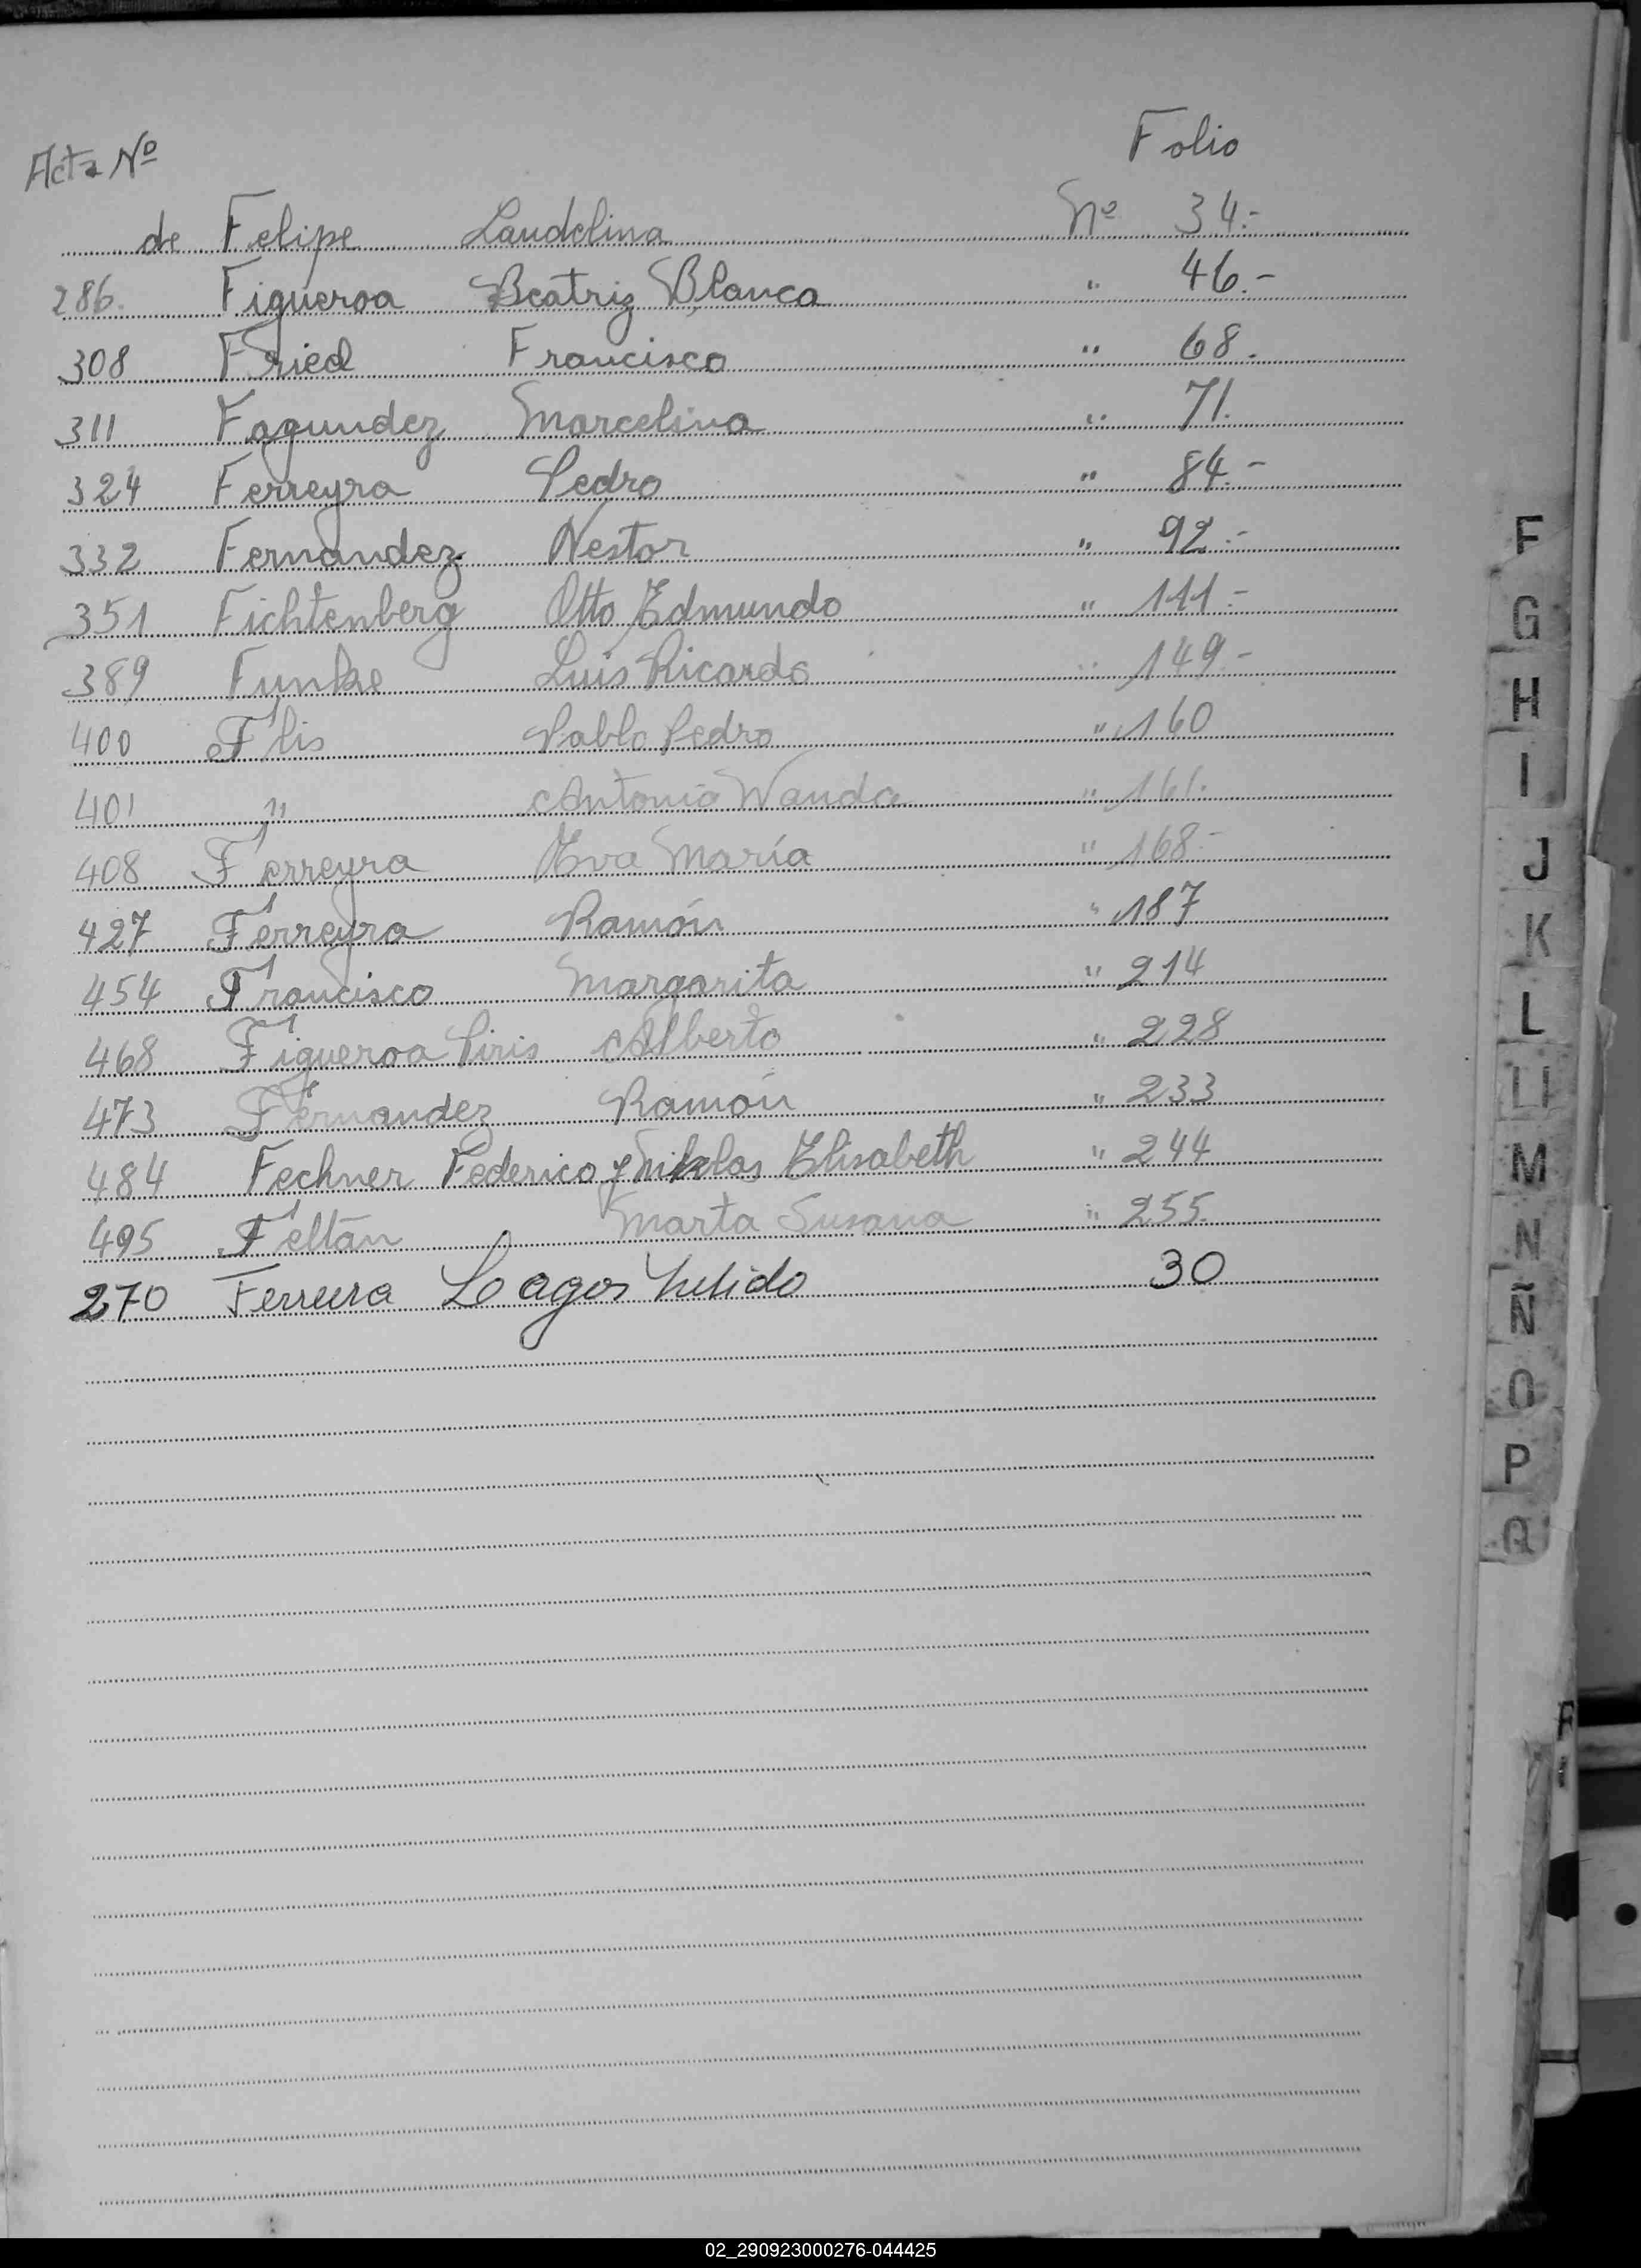 Folio
Acta Nº
de Felipe Laudelina Nº 34.-
286. Figueroa Beatriz Blanca " 46.-
308 Fried Francisco " 68.
311 Fagundez Marcelina " 71.
324 Ferreyra Pedro " 84.-
332 Fernandez Nestor " 92.-
351 Fichtenberg Otto Edmundo " 111.-
389 Funke Luis Ricardo " 149.-
400 Flis Pablo Pedro " 160
401 " Antonia Wanda " 161.
408 Ferreyra Eva María " 168-
427 Ferreyra Ramón " 187
454 Francisco Margarita " 214
468 Figueroa Piris Alberto " 228
473 Fernandez Ramón " 233
484 Fechner Federico y Elisabeth " 244
495 Feltan Marta Susana " 255.
270 Ferreira Lagos 30
F
G
H
I
J
K
L
Ll
M
N
Ñ
O
P
Q
02_290923000276-044425